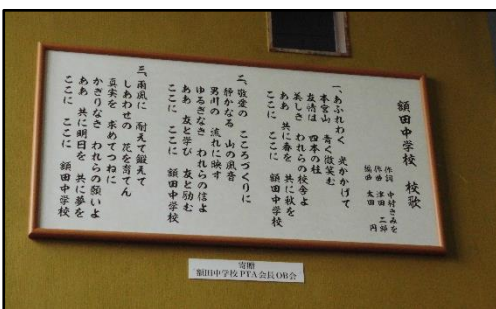 額田中学校 校歌
作詞 中村きみを
作曲 津田 二郎
編曲 太田 円
一、あふれわく 光かかげて
本宮山 青く微笑む
友情は 四本の柱
美しき われらの校舎よ
ああ 共に春を 共に秋を
ここに ここに 額田中学校
二、敬愛の こころづくりに
静かなる 山の風音
男川の 流れに映す
ゆるぎなき われらの信よ
ああ 友と学び 友と励む
ここに ここに 額田中学校
三、雨風に 耐えて鍛えて
しあわせの 花を育てん
真実を 求めてつねに
かぎりなき われらの願いよ
ああ 共に明日を 共に夢を
ここに ここに 額田中学校
寄贈
額田中学校PTA会長OB会